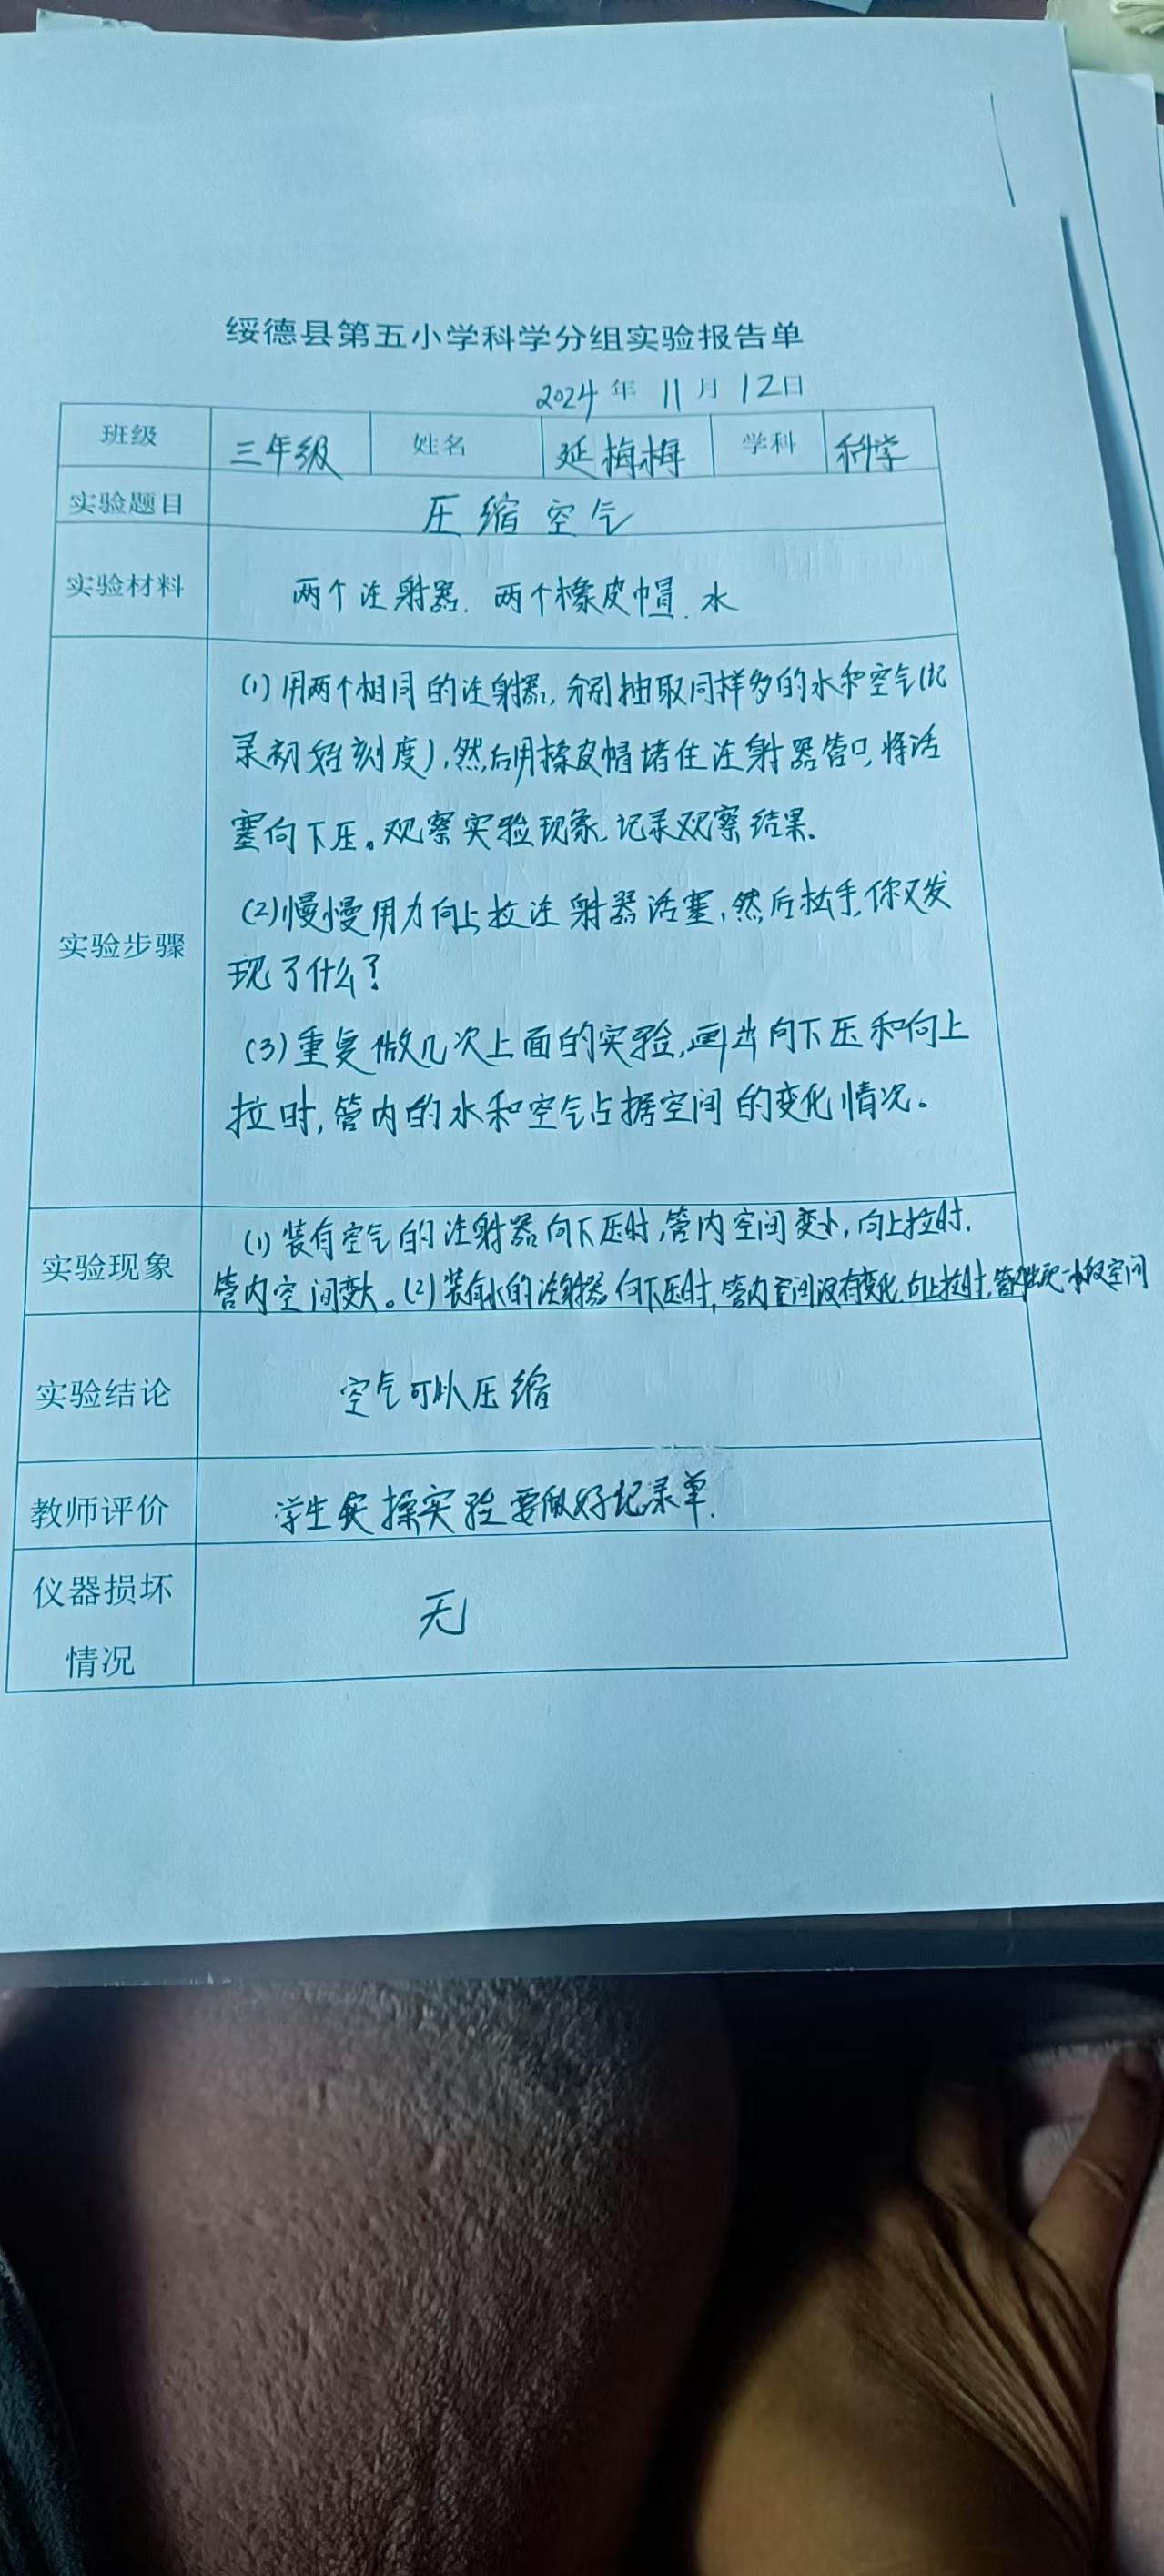 绥德县第五小学科学分组实验报告单
2024 年 11 月 12日
班级 三年级 姓名 延梅梅 学科 科学
实验题目 压缩空气
实验材料 两个注射器. 两个橡皮帽. 水
实验步骤
(1) 用两个相同的注射器, 分别抽取同样多的水和空气(记
录初始刻度), 然后用橡皮帽堵住注射器管口, 将活
塞向下压。观察实验现象. 记录观察结果.
(2)慢慢用力向上拉注射器活塞, 然后松手, 你又发
现了什么?
(3)重复做几次上面的实验, 画出向下压和向上
拉时, 管内的水和空气占据空间的变化情况。
实验现象
(1) 装有空气的注射器向下压时, 管内空间变小, 向上拉时.
管内空间变大。(2)装有水的注射器向下压时, 管内空间没有变化, 向上拉时, 管内出现一小段空间
实验结论 空气可以压缩
教师评价 学生实操实验要做好记录单.
仪器损坏
情况
无